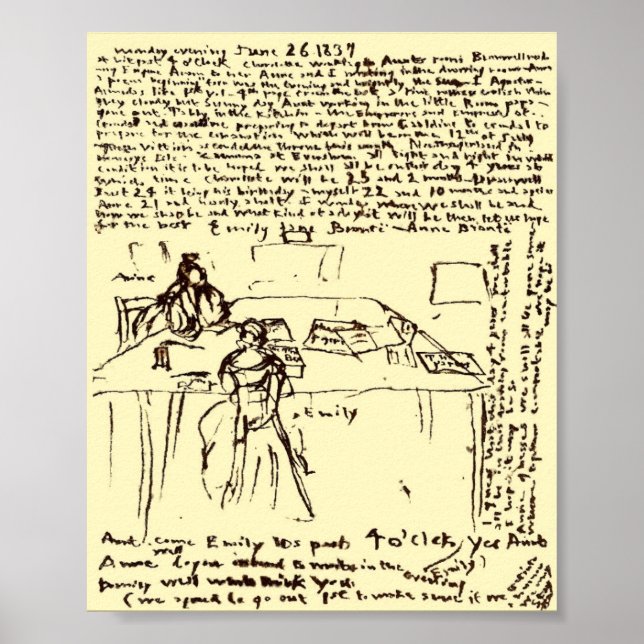 Monday evening June 26 1837
past 4 o'Clock Charlotte working in Aunts room Branwell reading
Eugene Aram to her Anne and I writing in the drawing room Anne
a poem beginning fair was the evening and brightly the Sun I Agustus
Almedas life 1st vol 4th page from the last fine rather coolish thin
grey cloudy but Sunny day Aunt working in the little Room papa
gone out Tabby in the Kitchen the Emperors and Empresses of
preparing to depart from Gaaldine to
prepare for the coronation which will be on the 12th of July
Vittoria ascended the throne this month Northangerland in
Monceys Isle Zamorna at Evesham all tight and right in which
condition it is to be hoped we shall all be on this day 4 years at
which time Charlotte will be 25 and 2 months Branwell
just 24 it being his birthday myself 22 and 10 months and a
Anne 21 and nearly a half I wonder where we shall be and
how we shall be and what kind of a day it will be then let us hope
for the best Emily Jane Brontë Anne Brontë
Anne
The
papers
The
Emily
I guess that this day 4 years we shall
all be in this drawing room comfortable
I hope it may be so
Anne guesses we shall all be gone some
where comfortable we hope it
may be
Aunt come Emily Its past 4 o'Clock Yes Aunt
Anne well do you intend to write in the evening Emily
well what think you
(we agreed to go out 1st to make sure if we